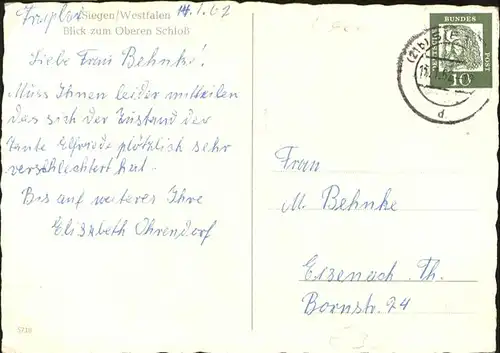 Siegen/Westfalen 14.1.62
Blick zum Oberen Schloß
Liebe Frau Behnke!
Muss Ihnen leider mitteilen
das sich der Zustand der
Tante Elfriede plötzlich sehr
verschlechtert hat.
Bis auf weiteres Ihre
Elisabeth Ohrendorf
5719
DEUTSCHE
BUNDES
POST
10
(21b) SIE
d
Frau
M. Behnke
Eisenach Th.
Bornstr. 24